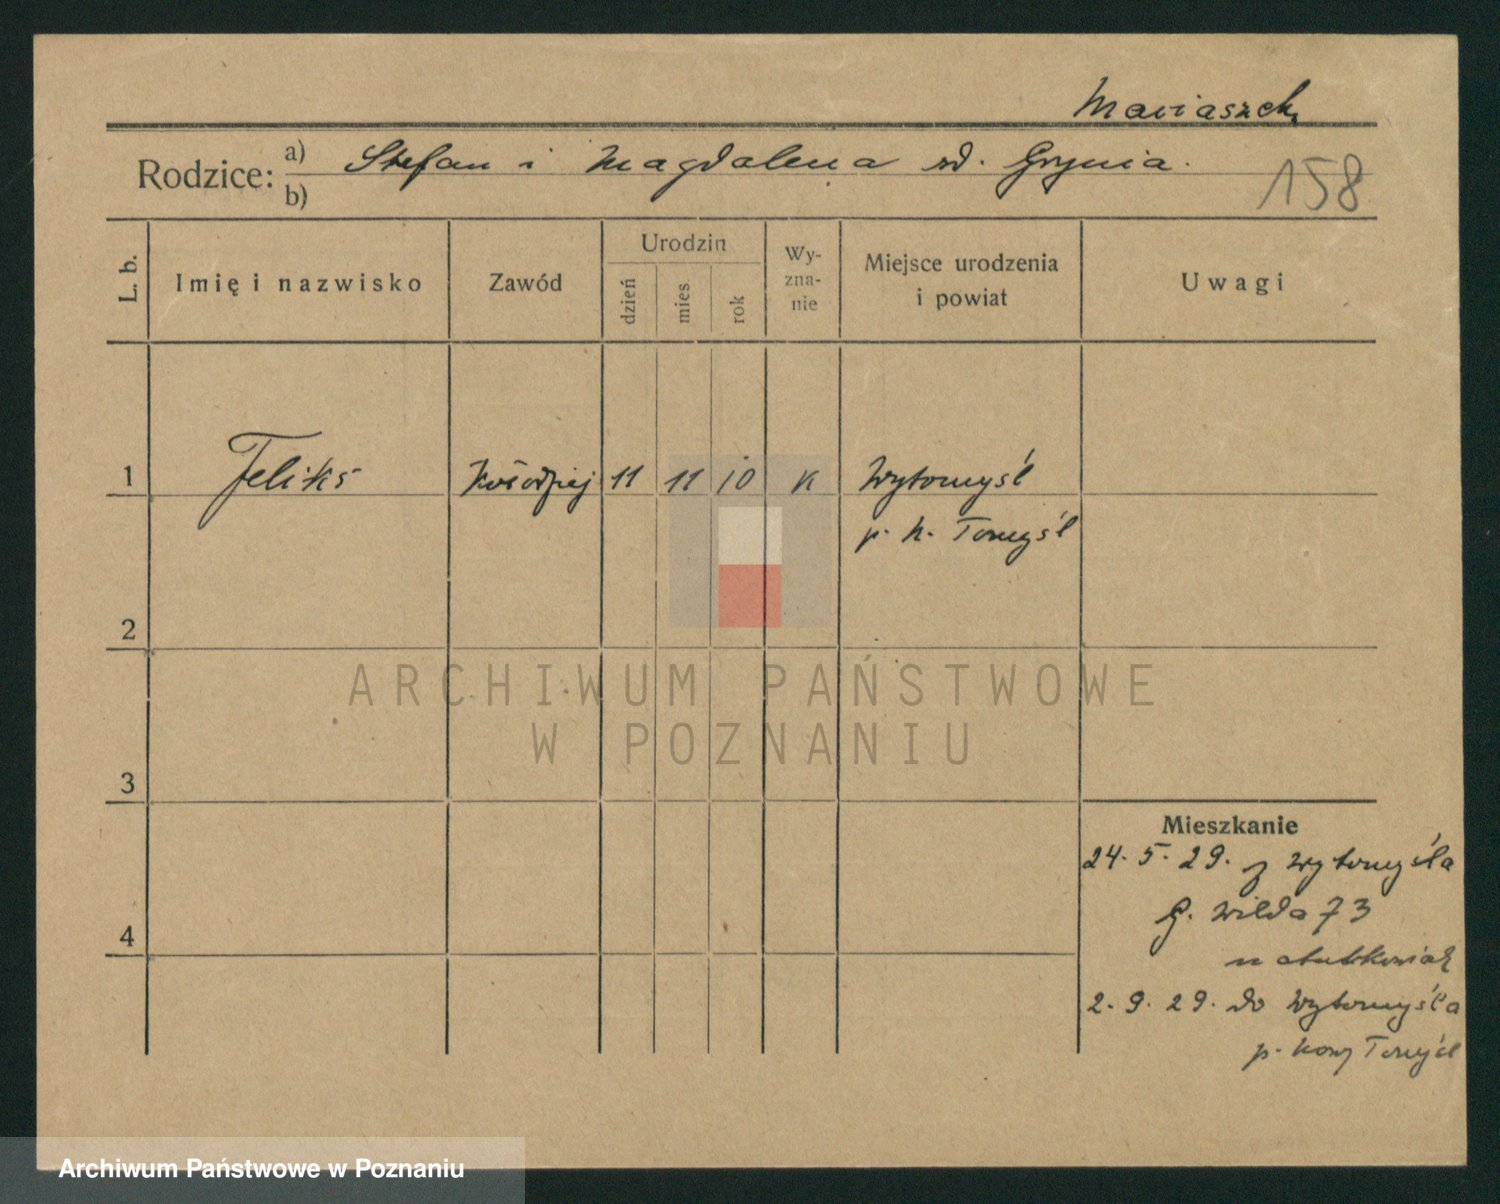 Maciaszek
Rodzice: a) Stefan i Magdalena zd. Grynia.
b)
158
L. b.
Imię i nazwisko
Zawód
Urodzin
dzień
mies
rok
Wy-
zna-
nie
Miejsce urodzenia
i powiat
Uwagi
1 Feliks Kołodziej 11 11 10 K Wytomyśl
p. N. Tomyśl
2
ARCHIWUM PAŃSTWOWE
W POZNANIU
3
Mieszkanie
24. 5. 29. z Wytomyśla
G. Wilda 73
4
2. 9. 29. do Wytomyśla
p. Nowy Tomyśl
Archiwum Państwowe w Poznaniu